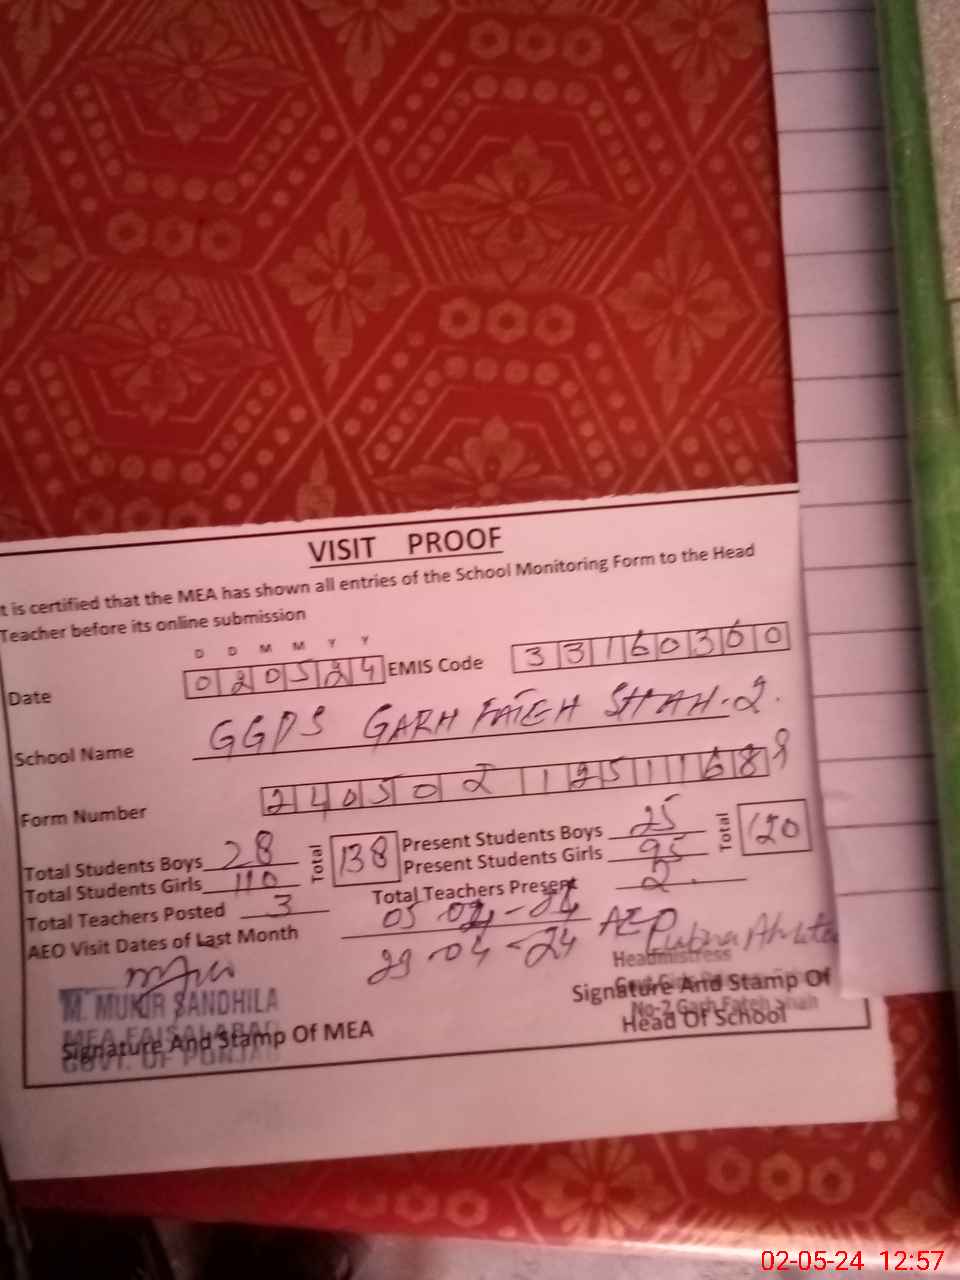 VISIT PROOF
t is certified that the MEA has shown all entries of the School Monitoring Form to the Head
Teacher before its online submission
D D M M Y Y
Date 020524 EMIS Code 33160360
School Name GGPS GARH FATEH SHAH-2.
Form Number 24050212511689
Total Students Boys 28 Total 138 Present Students Boys 25 Total 120
Total Students Girls 110 Present Students Girls 95
Total Teachers Posted 3 Total Teachers Present 2
AEO Visit Dates of Last Month 05-04-24 AEO
29-04-24
Headmistress
M. MUKIR SANDHILA
MEA FAISALABAD
GOVT. OF PUNJAB
Signature And Stamp Of MEA
Signature And Stamp Of
No-2 Garh Fateh Shah
Head Of School
02-05-24 12:57